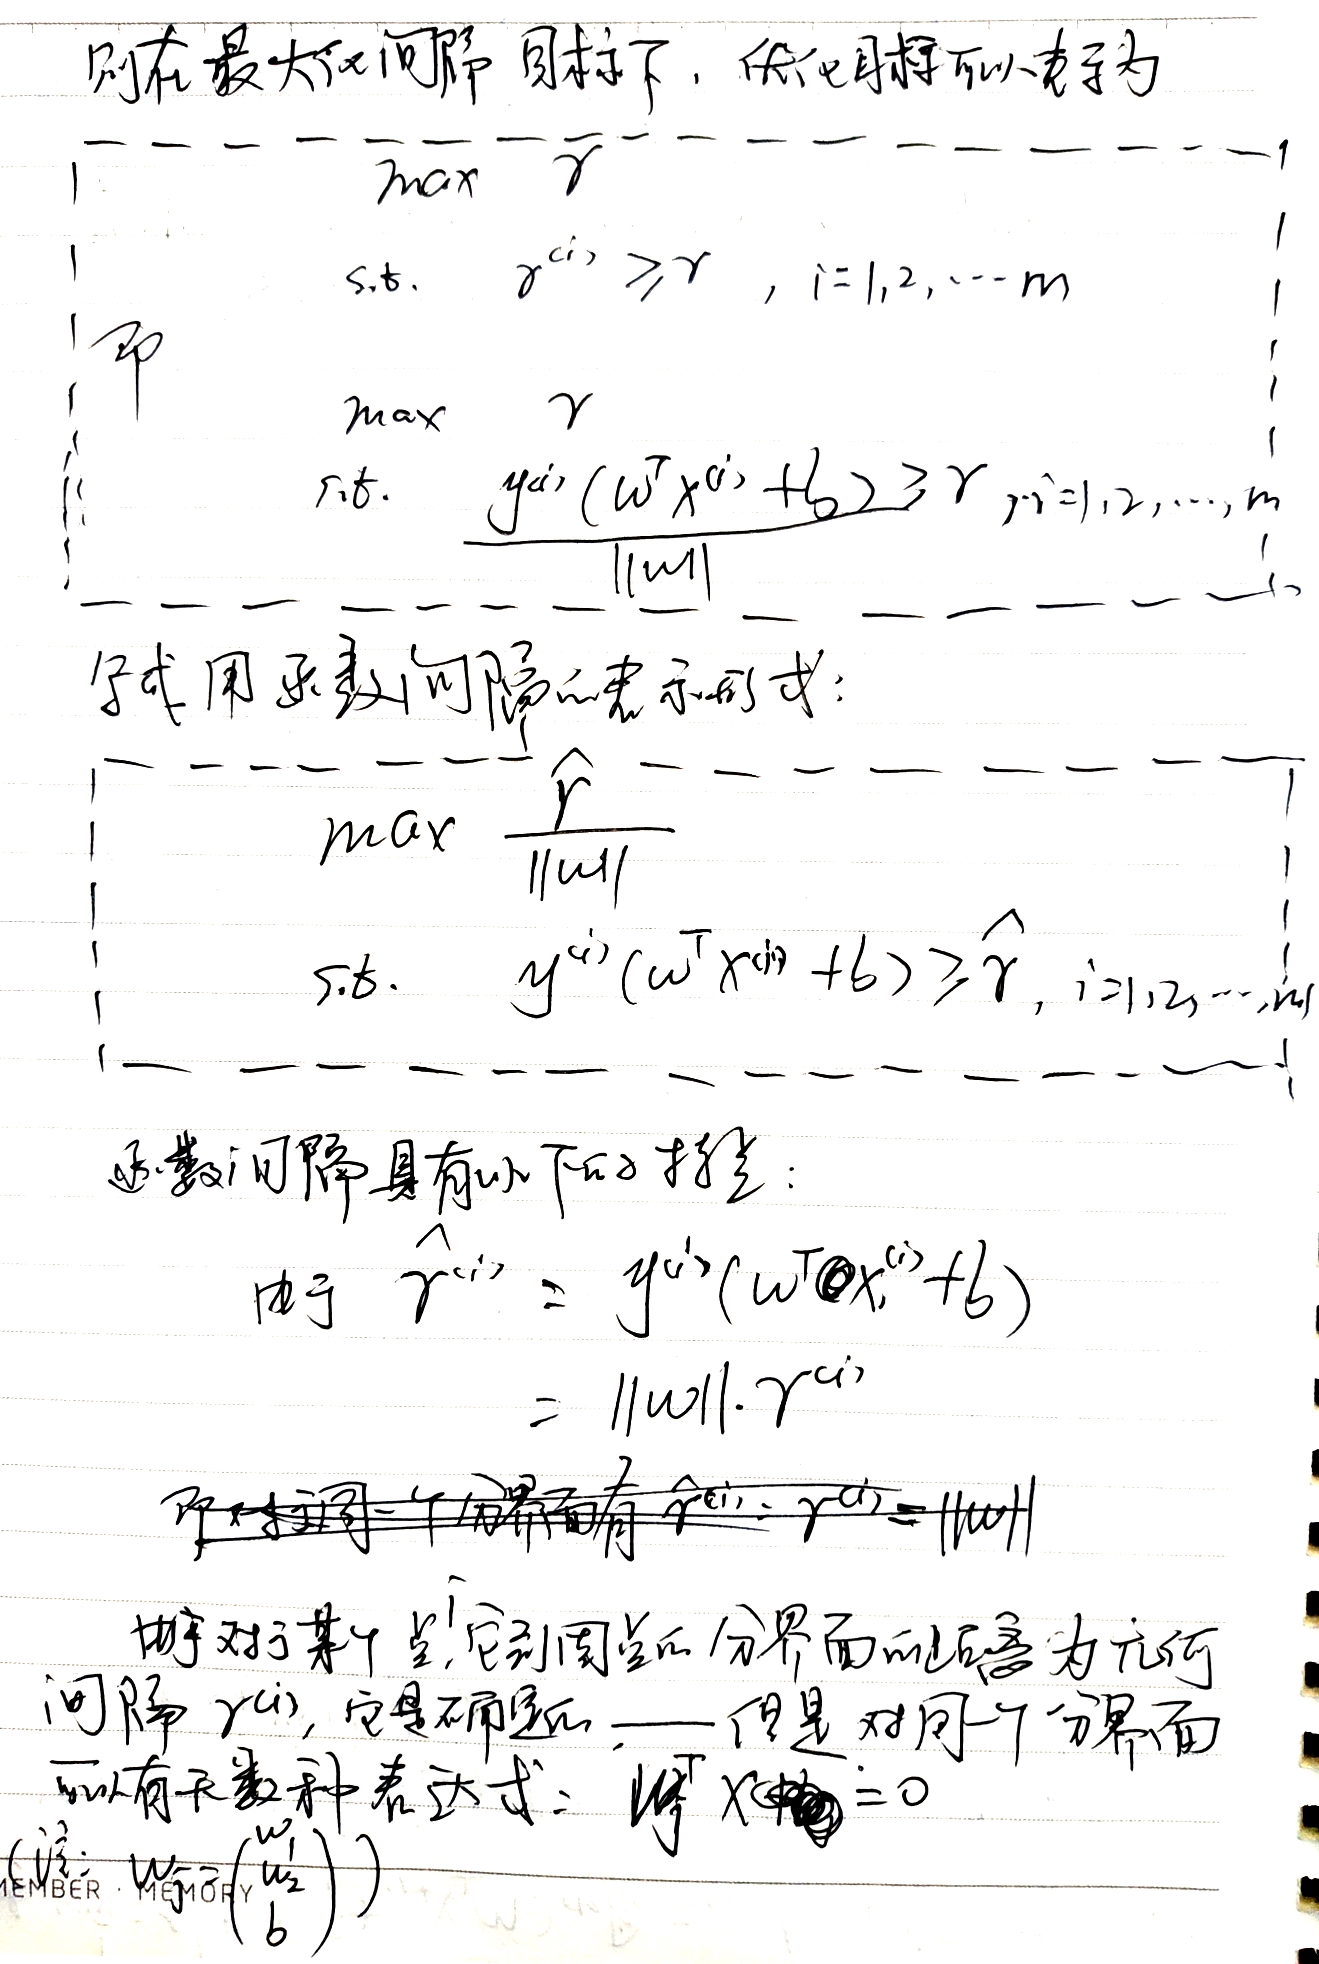 则在最大化间隔目标下，优化目标可以表示为
max γ
s.t. γ⁽ⁱ⁾ ≥ γ , i=1,2,…m
即
max γ
s.t. y⁽ⁱ⁾(wᵀx⁽ⁱ⁾+b) / ||w|| ≥ γ , i=1,2,…,m
写成用函数间隔的表示形式：
max γ̂ / ||w||
s.t. y⁽ⁱ⁾(wᵀx⁽ⁱ⁾+b) ≥ γ̂, i=1,2,…,m
函数间隔具有以下的性：
由于 γ̂⁽ⁱ⁾ = y⁽ⁱ⁾(wᵀx⁽ⁱ⁾+b)
= ||w||·γ⁽ⁱ⁾
即对于同一个分界面有 γ̂⁽ⁱ⁾ : γ⁽ⁱ⁾ = ||w||
由于对于某个点i,它到固定的分界面的距离为几何
间隔 γ⁽ⁱ⁾, 它是确定的 —— 但是对同一个分界面
可以有无数种表达式: ᵀx = 0
(注: w = (w₁ w₂ b))
MEMBER · MEMORY